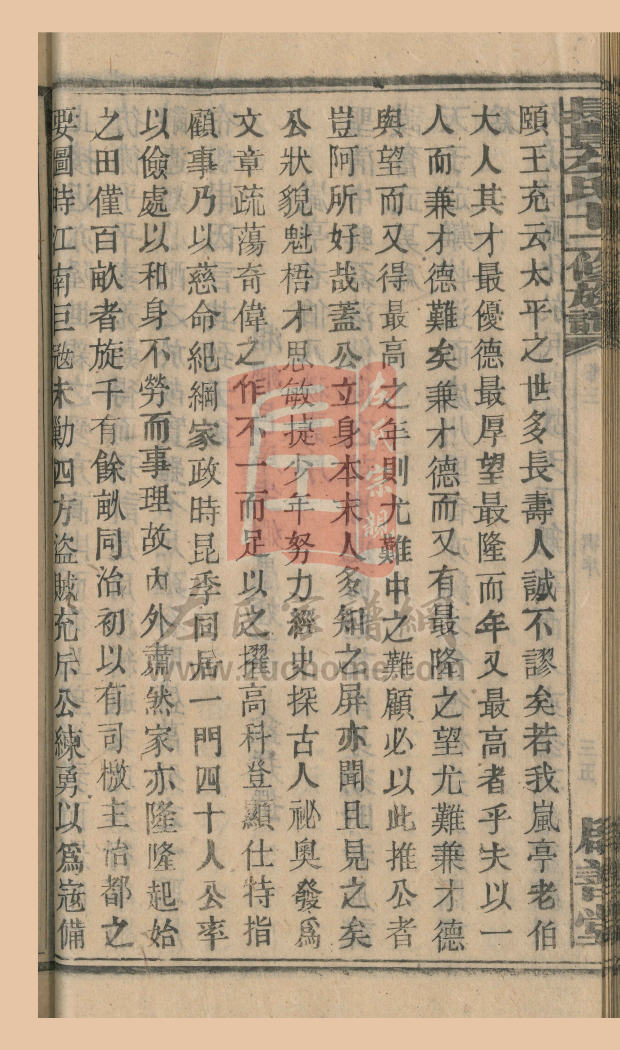 頤王充云太平之世多長壽人誠不謬矣若我嵐亭老伯
大人其才最優德最厚望最隆而年又最高者乎夫以一
人而兼才德難矣兼才德而又有最隆之望尤難兼才德
與望而又得最高之年則尤難中之難顧必以此推公者
豈阿所好哉蓋公立身本末人多知之屏亦聞且見之矣
公狀貌魁梧才思敏捷少年努力經史探古人祕奧發爲
文章疏蕩奇偉之作不一而足以之擢高科登顯仕特指
顧事乃以慈命紀綱家政時昆季同居一門四十人公率
以儉處以和身不勞而事理故內外肅然家亦隆隆起始
之田僅百畝者旋千有餘畝同治初以有司檄主治都之
要圖時江南巨寇未勦四方盜賊充斥公練勇以爲寇備
左氏十二修族譜
卷三
三五
左氏宗親
左氏家譜網
www.zuohome.com